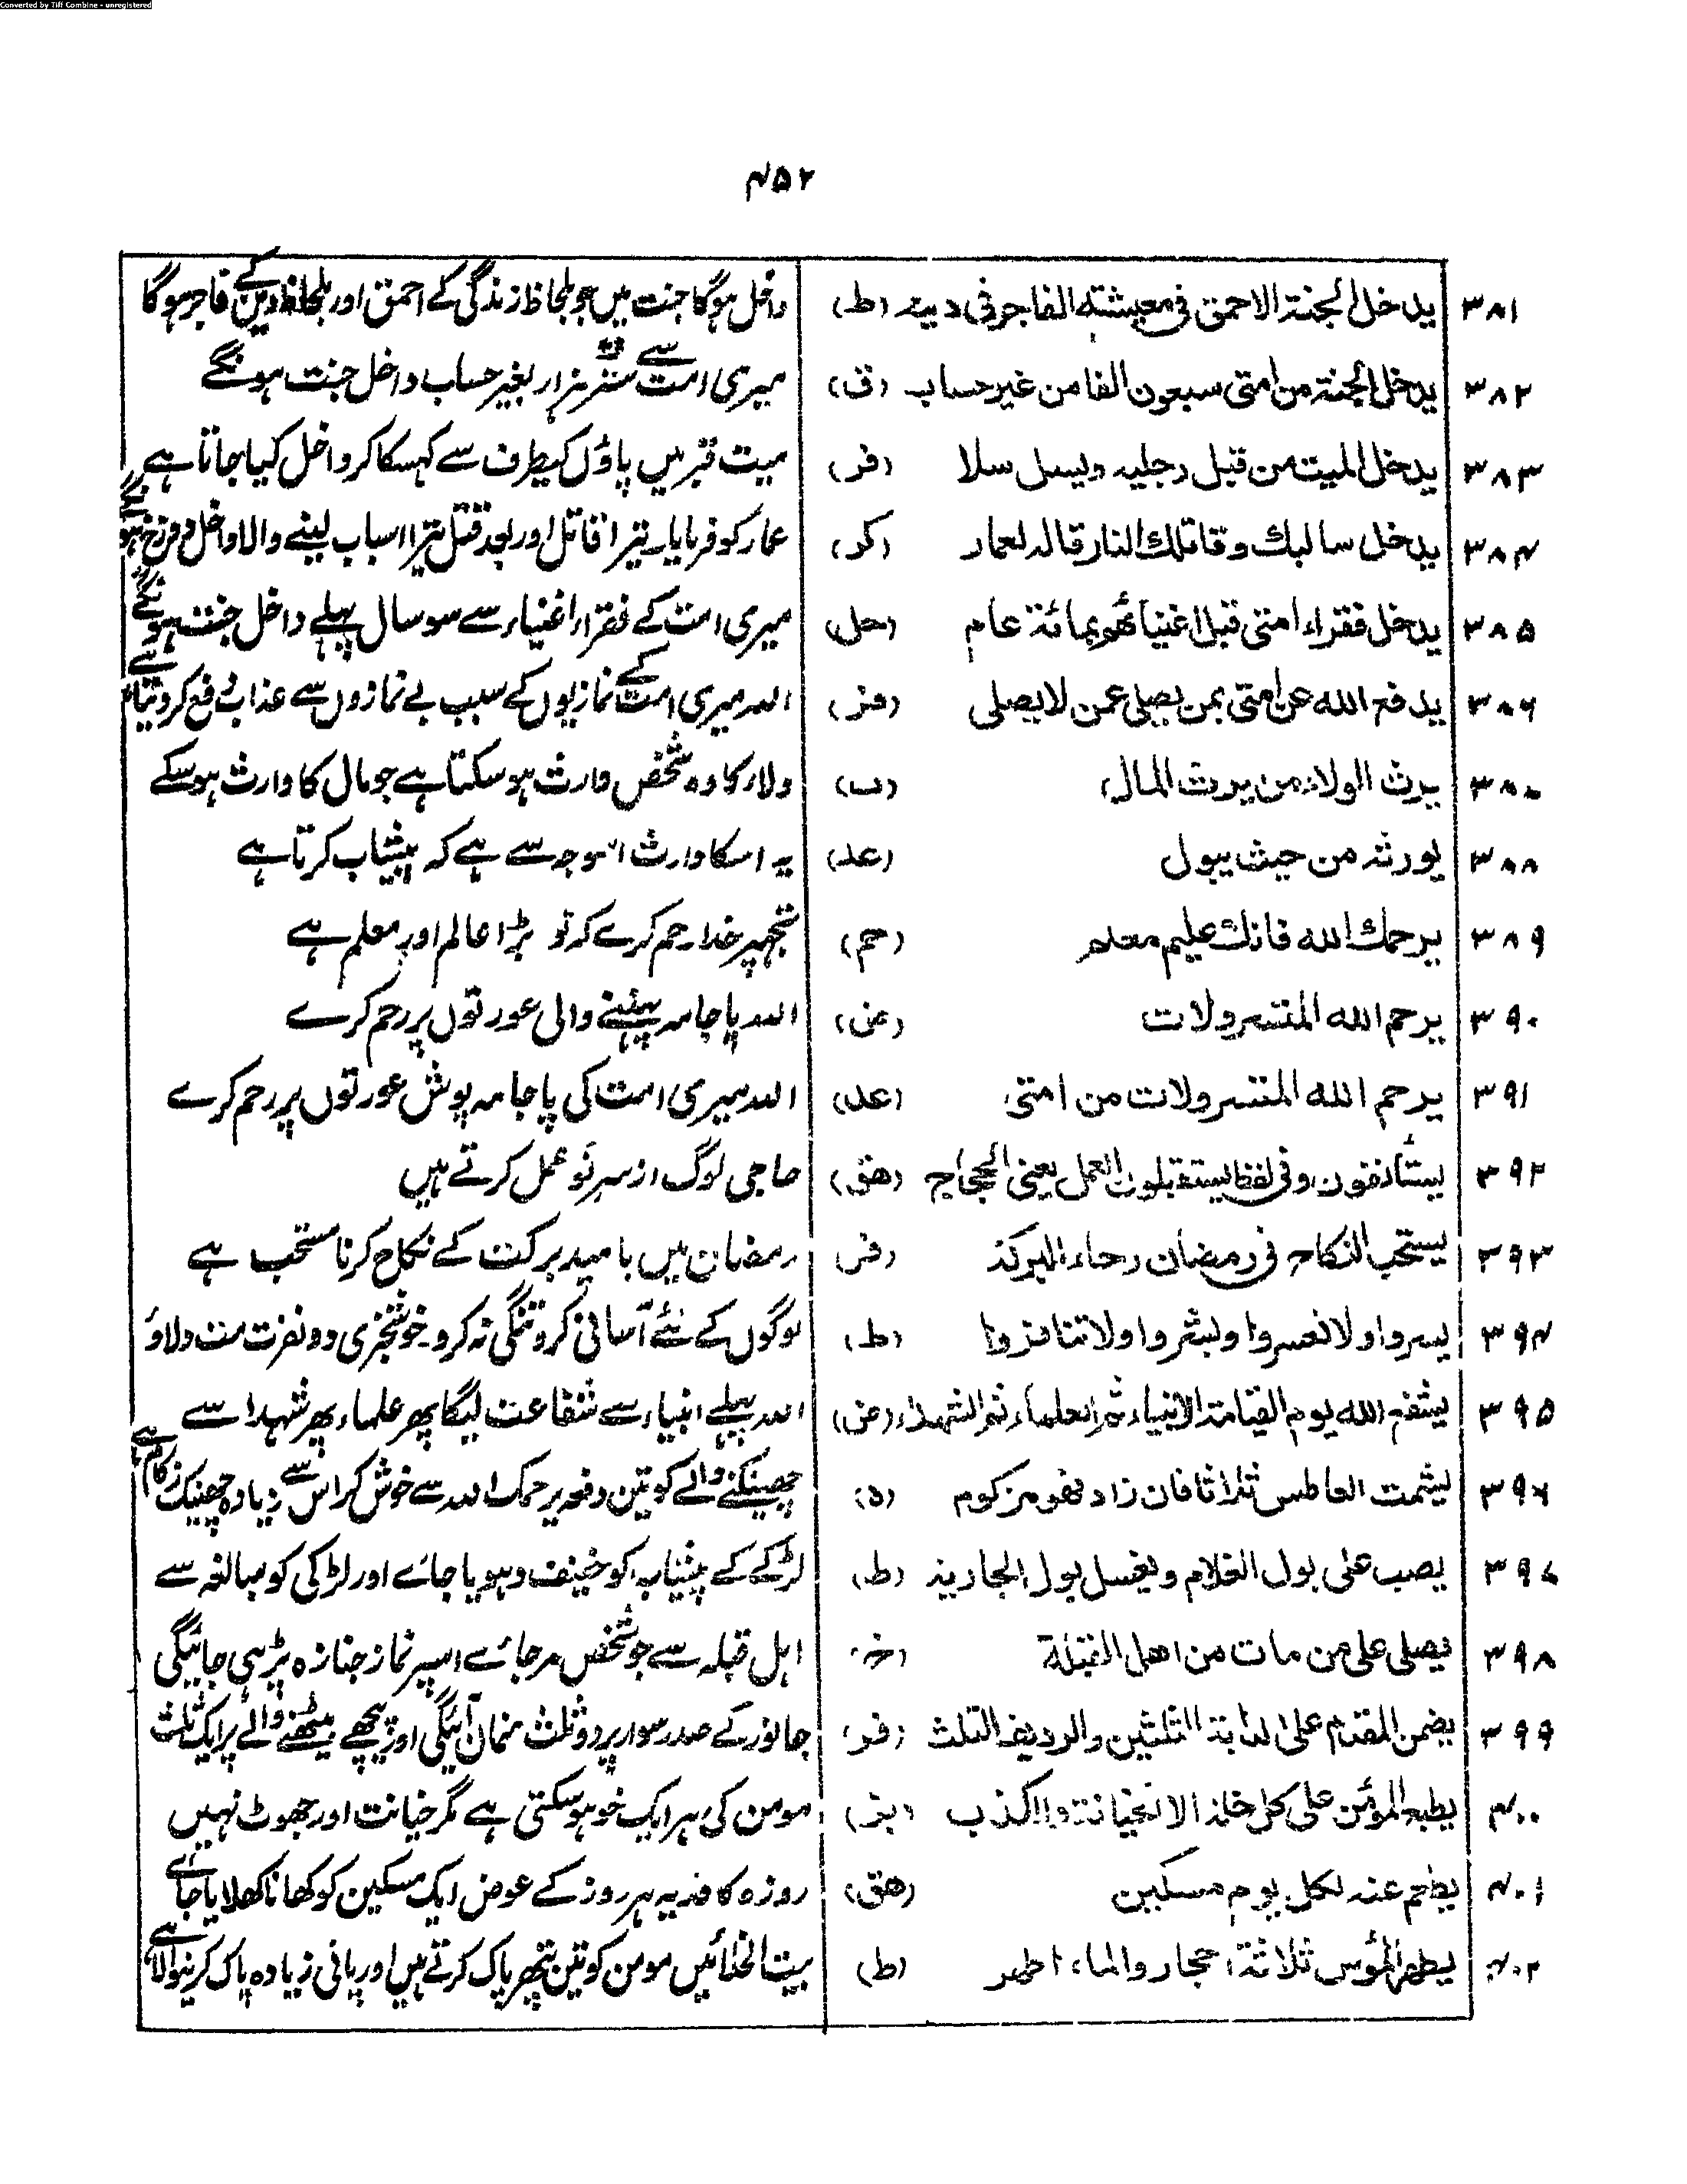 Converted by Tiff Combine - unregistered
۴۵۲
۳۸۱ يدخل الجنة الاحمق فى معيشته الفاجر فى دينه (ط) داخل ہوگا جنت میں جو بلحاظ زندگی کے احمق اور بلحاظ دین کے فاجر ہوگا
۳۸۲ يدخل الجنة من امتى سبعون الفا من غير حساب (ق) میری امت سے ستر ہزار بغیر حساب داخل جنت ہونگے
۳۸۳ يدخل الميت من قبل رجليه ويسل سلا (فر) میت قبر میں پاؤں کیطرف سے کہسکا کر داخل کیا جاتا ہے
۳۸۴ يدخل سالبك وقاتلك النار قاله لعمار (كر) عمار کو فرمایا۔ تیرا قاتل اور بعد قتل تیرا اسباب لینے والا داخل دوزخ ہونگے
۳۸۵ يدخل فقراء امتى قبل اغنيائهم بمائة عام (حل) میری امت کے فقراء اغنیاء سے سو سال پہلے داخل جنت ہونگے
۳۸۶ يدفع الله عن امتى بمن يصلى عمن لا يصلى (فر) اللہ میری امت کے نمازیوں کے سبب بے نمازوں سے عذاب دفع کر دیتا ہے
۳۸۷ يرث الولاء من يرث المال (ت) ولاء کا وہ شخص وارث ہو سکتا ہے جو مال کا وارث ہو سکے
۳۸۸ يورثه من حيث يبول (عد) یہ اسکا وارث اسوجہ سے ہے کہ پیشاب کرتا ہے
۳۸۹ يرحمك الله فانك عليم معلم (حم) تجھپر خدا رحم کرے کہ تو بڑا عالم اور معلم ہے
۳۹۰ يرحم الله المتسرولات (عق) اللہ پاجامہ پہننے والی عورتوں پر رحم کرے
۳۹۱ يرحم الله المتسرولات من امتى (عد) اللہ میری امت کی پاجامہ پوش عورتوں پر رحم کرے
۳۹۲ يستأنفون وفى لفظ يستقبلون العمل يعنى الحجاج (هق) حاجی لوگ از سرنو عمل کرتے ہیں
۳۹۳ يستحب النكاح فى رمضان رجاء البركة (فر) رمضان میں بامید برکت کے نکاح کرنا مستحب ہے
۳۹۴ يسروا ولا تعسروا وبشروا ولا تنافروا (ط) لوگوں کے لئے آسانی کرو تنگی نہ کرو۔ خوشخبری دو نفرت مت دلاؤ
۳۹۵ يشفع الله يوم القيامة الانبياء ثم العلماء ثم الشهداء (عق) اللہ پہلے انبیاء سے شفاعت لیگا پھر علماء پھر شہدا سے
۳۹۶ يشمت العاطس ثلاثا فان زاد فهو مزكوم (ه) چھینکنے والے کو تین دفعہ یرحمک اللہ سے خوش کر اس سے زیادہ چھینک زکام ہے
۳۹۷ يصب على بول الغلام ويغسل بول الجارية (ط) لڑکے کے پیشاب کو خفیف دہویا جائے اور لڑکی کو مبالغہ سے
۳۹۸ يصلى على من مات من اهل القبلة (خ) اہل قبلہ سے جو شخص مر جائے اسپر نماز جنازہ پڑہی جائیگی
۳۹۹ يضمن المقدم على الدابة الثلثين والرديف الثلث (فر) جانور کے صدر سوار پر دو ثلث ضمان آئیگی اور پیچھے بیٹھنے والے پر ایک ثلث
۴۰۰ يطبع المؤمن على كل خلة الا الخيانة والكذب (بز) مومن کی ہر ایک خو ہو سکتی ہے مگر خیانت اور جھوٹ نہیں
۴۰۱ يطعم عنه لكل يوم مسكين (هق) روزہ کا فدیہ ہر روز کے عوض ایک مسکین کو کھانا کھلایا جائے
۴۰۲ يطهر المؤمن ثلاثة احجار والماء اطهر (ط) بیت الخلا میں مومن کو تین پتھر پاک کرتے ہیں اور پانی زیادہ پاک کرنیوالا ہے